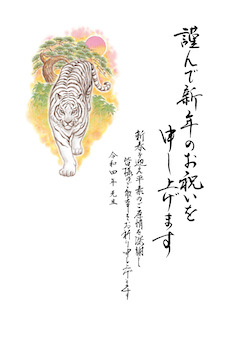 謹んで新年のお祝いを
申し上げます
新春を迎え平素のご厚情を深謝し
皆様のご多幸をお祈り申し上げます
令和四年元旦